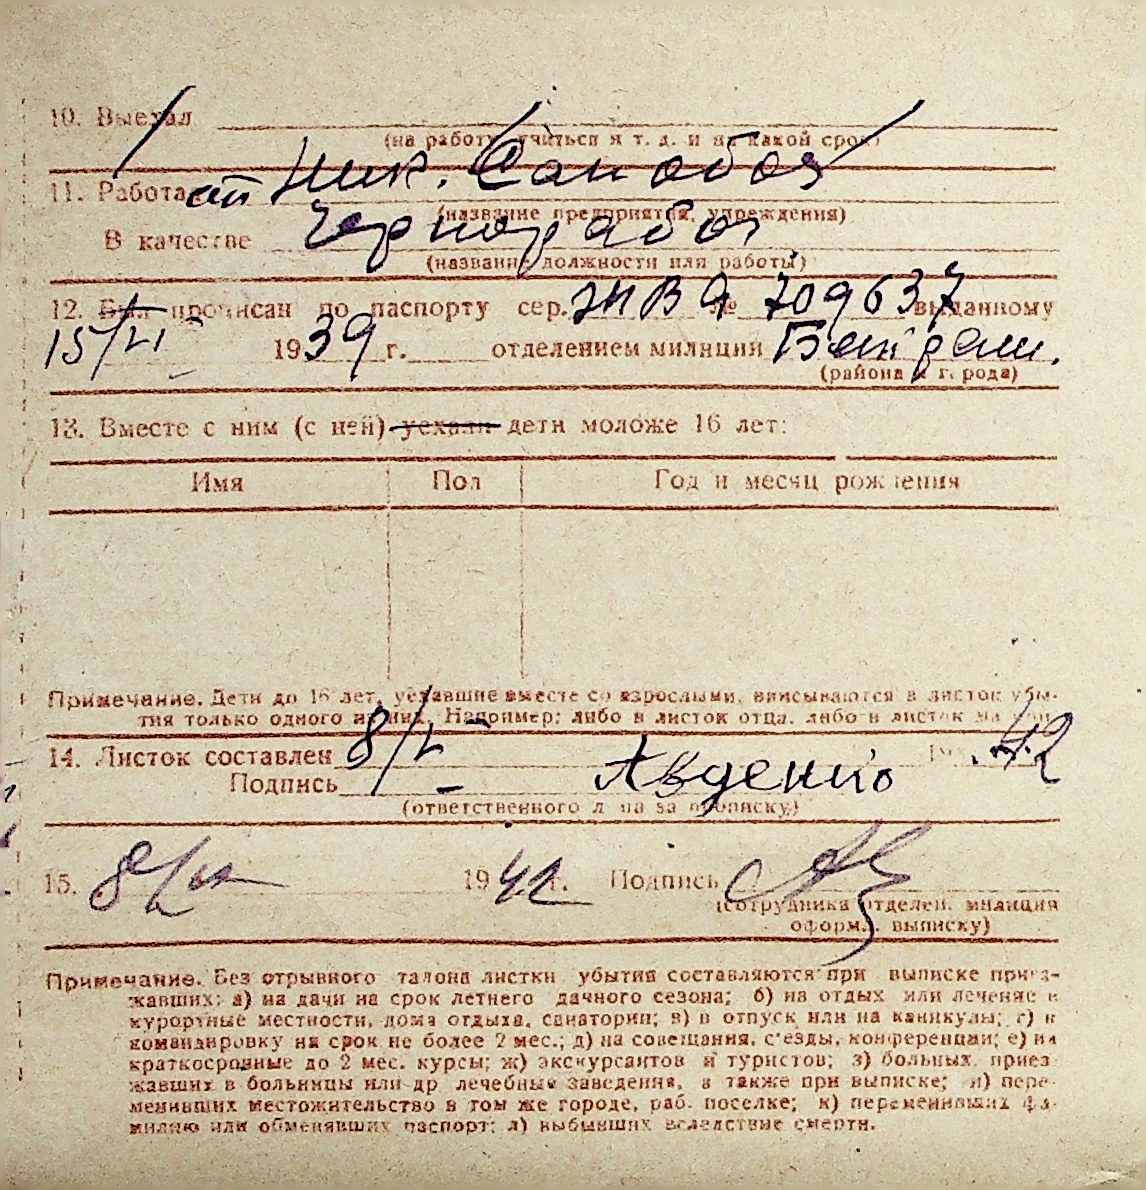 10. Выехал
(на работу, учиться и т. д. и на какой срок)
11. Работал
(название предприятия, учреждения)
В качестве Чернорабоч.
(название должности или работы)
12. Был прописан по паспорту сер. № 709637 выданному
15/VI 1939 г. отделением милиции
(района и города)
13. Вместе с ним (с ней) уехали дети моложе 16 лет:
Имя Пол Год и месяц рождения
Примечание. Дети до 16 лет, уехавшие вместе со взрослыми, вписываются в листок убы-
тия только одного из них. Например: либо в листок отца, либо в листок
14. Листок составлен 8/V 42
Подпись
(ответственного лица за прописку)
15. 1942 г. Подпись
(сотрудника отделен. милиции
оформ. выписку)
Примечание. Без отрывного талона листки убытия составляются при выписке приез-
жавших: а) на дачи на срок летнего дачного сезона; б) на отдых или лечение в
курортные местности, дома отдыха, санатории; в) в отпуск или на каникулы; г) в
командировку на срок не более 2 мес.; д) на совещания, с'езды, конференции; е) на
краткосрочные до 2 мес. курсы; ж) экскурсантов и туристов; з) больных, приез-
жавших в больницы или др лечебные заведения, а также при выписке; и) пере-
менивших местожительство в том же городе, раб. поселке; к) переменивших фа-
милию или обменявших паспорт; л) выбывших вследствие смерти.